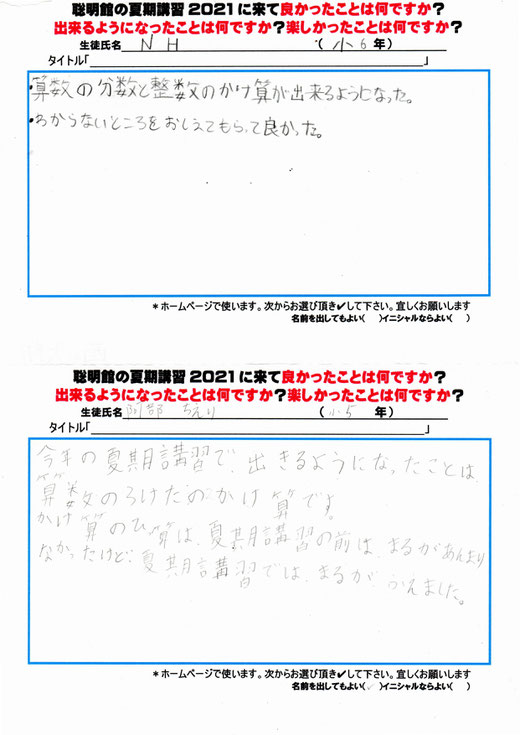 聡明館の夏期講習2021に来て良かったことは何ですか?
出来るようになったことは何ですか?楽しかったことは何ですか?
生徒氏名 N H (小6年)
タイトル「 」
・算数の分数と整数のかけ算が出来るようになった。
・わからないところをおしえてもらって良かった。
*ホームページで使います。次からお選び頂き✔して下さい。宜しくお願いします
名前を出してもよい( )イニシャルならよい( )
聡明館の夏期講習2021に来て良かったことは何ですか?
出来るようになったことは何ですか?楽しかったことは何ですか?
生徒氏名 阿部 ちえり (小5年)
タイトル「 」
今年の夏期講習で、出きるようになったことは、
算数のろけたのかけ算です。
かけ算のひっ算は、夏期講習の前は、まるがあんまり
なかったけど、夏期講習では、まるが、ふえました。
*ホームページで使います。次からお選び頂き✔して下さい。宜しくお願いします
名前を出してもよい(✓)イニシャルならよい( )